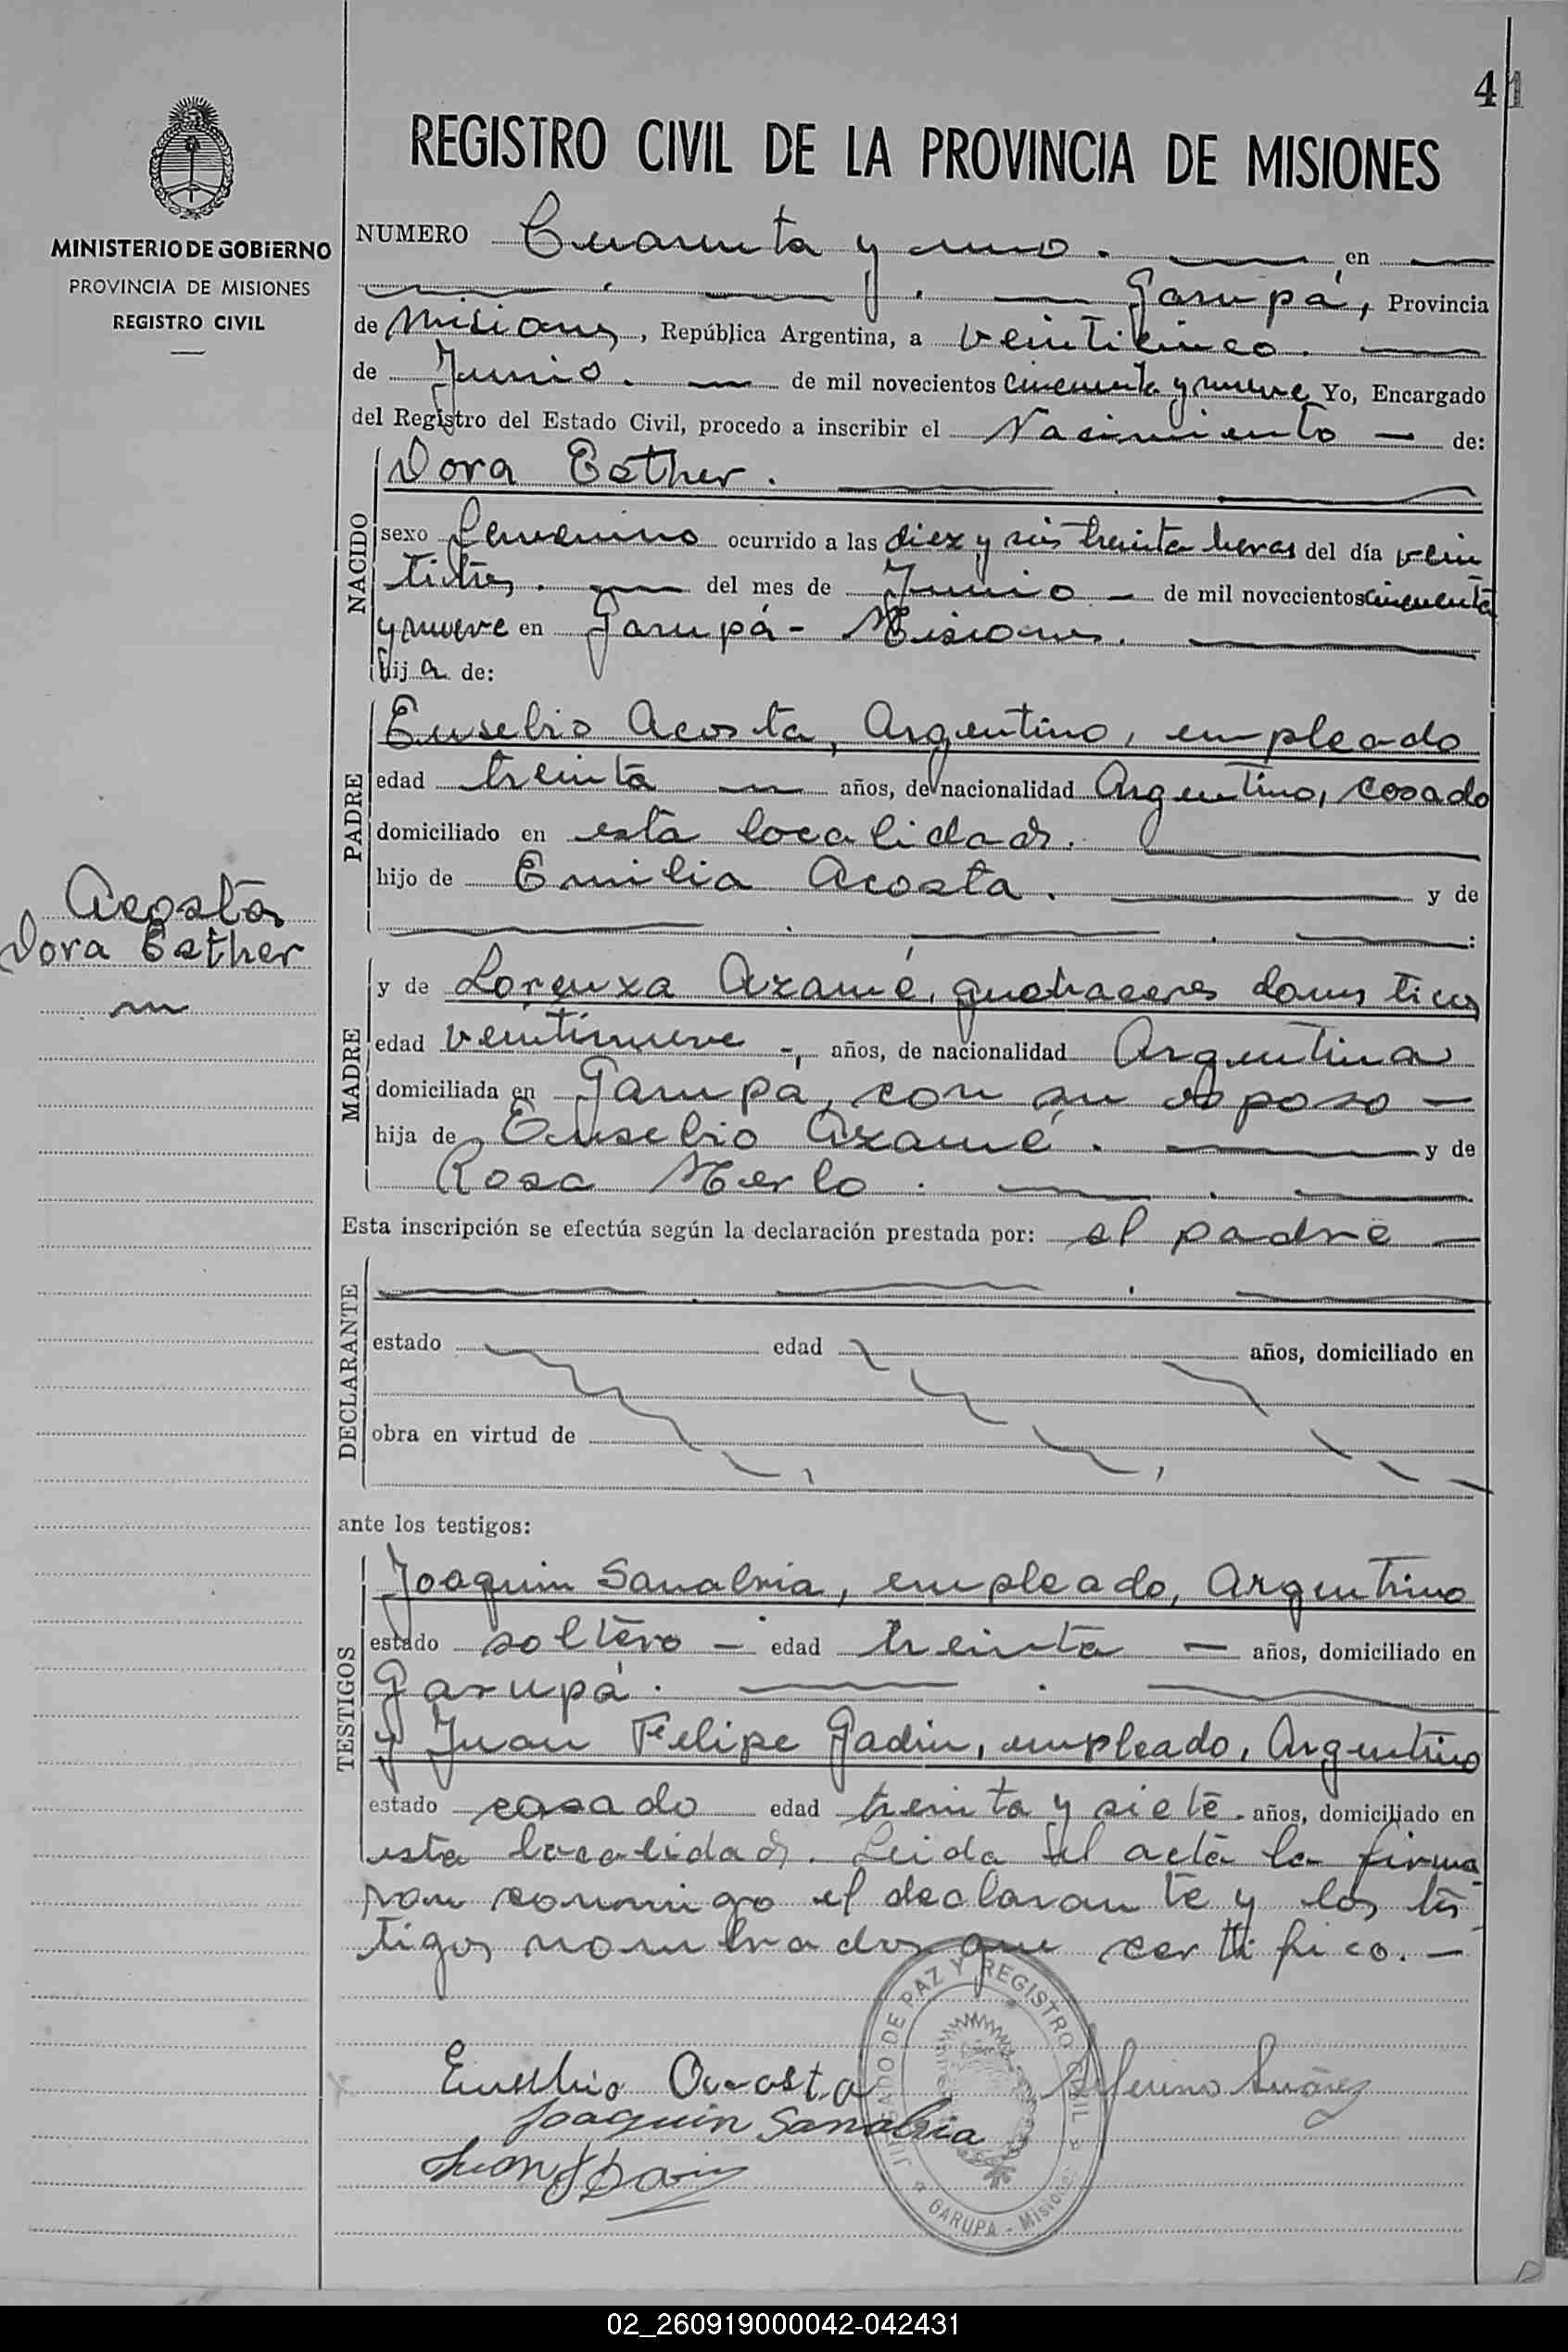 41
REGISTRO CIVIL DE LA PROVINCIA DE MISIONES
MINISTERIO DE GOBIERNO
PROVINCIA DE MISIONES
REGISTRO CIVIL
NUMERO Cuarenta y uno. en
Garupá, Provincia
de Misiones, República Argentina, a veinticinco.
de Junio. de mil novecientos cincuenta y nueve Yo, Encargado
del Registro del Estado Civil, procedo a inscribir el Nacimiento de:
Dora Esther.
NACIDO
sexo femenino ocurrido a las diez y seis treinta horas del día vein
titres. del mes de Junio de mil novecientos cincuenta
y nueve en Garupá - Misiones.
hija de:
PADRE
Eusebio Acosta, Argentino, empleado
edad treinta años, de nacionalidad Argentino, casado
domiciliado en esta localidad.
hijo de Emilia Acosta. y de
Acosta
Dora Esther
MADRE
y de Lorenza Azamé, quehaceres domesticos
edad veintinueve -, años, de nacionalidad Argentina
domiciliada en Garupá, con su esposo -
hija de Eusebio Azamé. y de
Rosa Merlo.
Esta inscripción se efectúa según la declaración prestada por: el padre -
DECLARANTE
estado edad años, domiciliado en
obra en virtud de
ante los testigos:
TESTIGOS
Joaquin Sanabria, empleado, Argentino
estado soltero - edad treinta - años, domiciliado en
Garupá.
y Juan Felipe Gadin, empleado, Argentino
estado casado edad treinta y siete. años, domiciliado en
esta localidad. Leida el acta la firma
ron conmigo el declarante y los tes
tigos nombrados que certifico. -
JUZGADO DE PAZ Y REGISTRO CIVIL
GARUPA - Misiones
Eusebio Acosta
Joaquin Sanabria
02_260919000042-042431